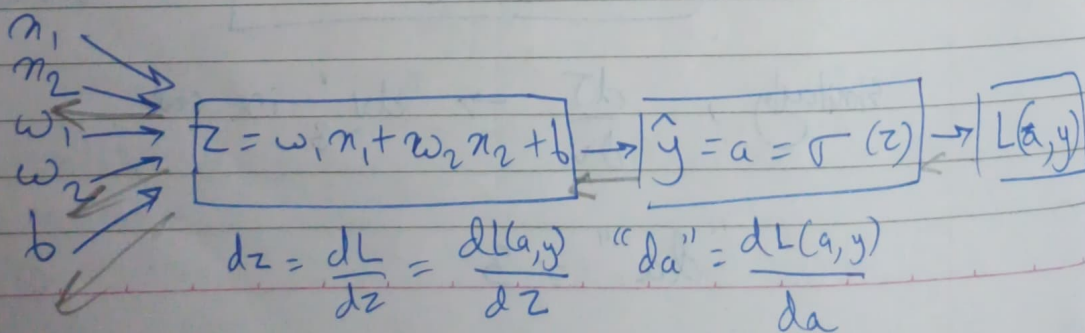 x₁
x₂
w₁
w₂
b
z = w₁x₁ + w₂x₂ + b → ŷ = a = σ(z) → L(a,y)
dz = dL/dz = dL(a,y)/dz "da" = dL(a,y)/da